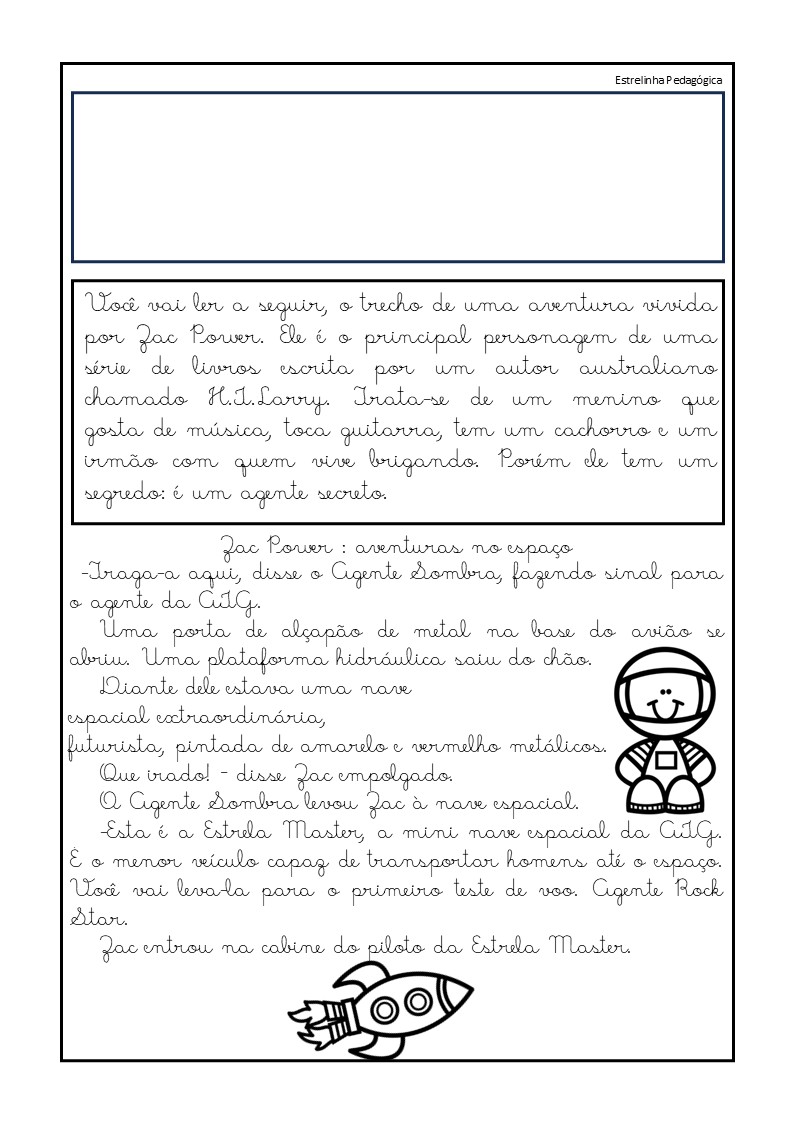 Estrelinha Pedagógica
Você vai ler a seguir, o trecho de uma aventura vivida
por Zac Power. Ele é o principal personagem de uma
série de livros escrita por um autor australiano
chamado H.I.Larry. Trata-se de um menino que
gosta de música, toca guitarra, tem um cachorro e um
irmão com quem vive brigando. Porém ele tem um
segredo: é um agente secreto.
Zac Power : aventuras no espaço
-Traga-a aqui, disse o Agente Sombra, fazendo sinal para
o agente da AIG.
Uma porta de alçapão de metal na base do avião se
abriu. Uma plataforma hidráulica saiu do chão.
Diante dele estava uma nave
espacial extraordinária,
futurista, pintada de amarelo e vermelho metálicos.
Que irado! - disse Zac empolgado.
O Agente Sombra levou Zac à nave espacial.
-Esta é a Estrela Master, a mini nave espacial da AIG.
É o menor veículo capaz de transportar homens até o espaço.
Você vai leva-la para o primeiro teste de voo. Agente Rock
Star.
Zac entrou na cabine do piloto da Estrela Master.